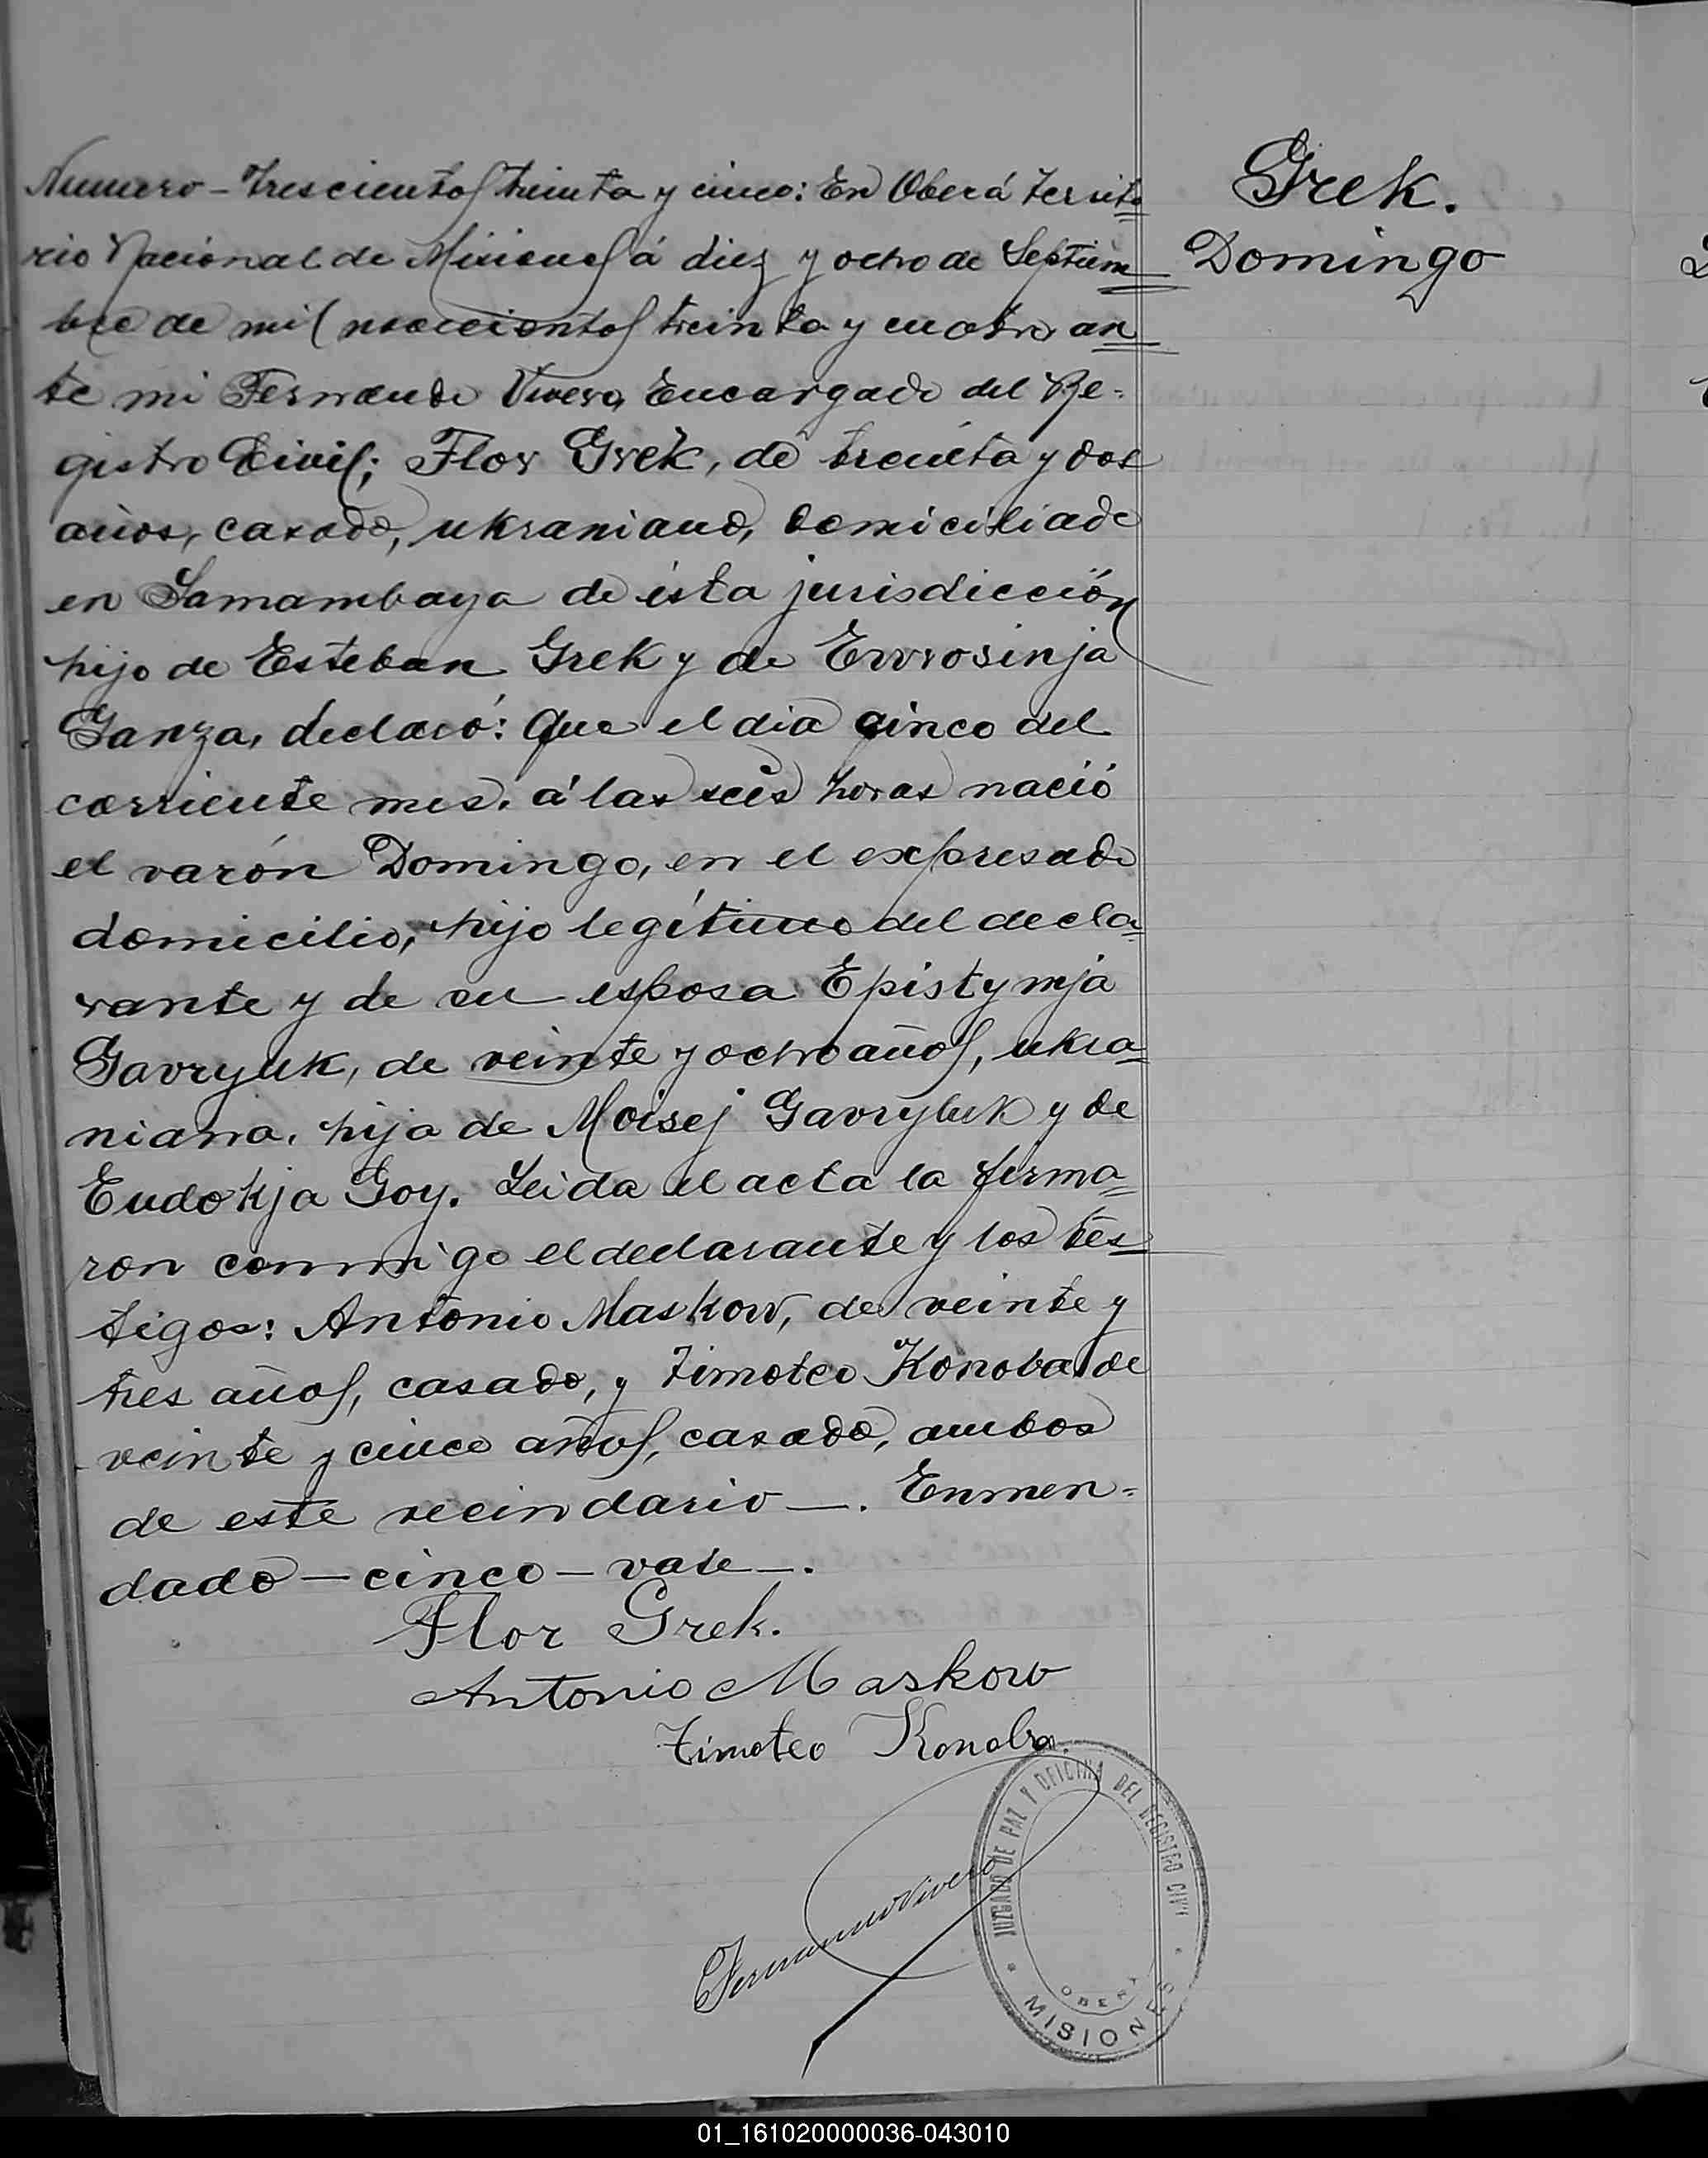 Numero - Trescientos treinta y cinco: En Oberá Territo
rio Nacional de Misiones á diez y ocho de Septiem
bre de mil novecientos treinta y cuatro an
te mi Fernando Vivero, Encargado del Re-
gistro Civil; Flor Grek, de treinta y dos
años, casado, ukraniano, domiciliado
en Samambaya de ésta jurisdicción
hijo de Esteban Grek y de Ewrosinja
Ganza, declaró: Que el dia cinco del
corriente mes. á las seis horas nació
el varón Domingo, en el expresado
domicilio, hijo legítimo del decla
rante y de su esposa Epistymja
Gavryluk, de veinte y ocho años, ukra
niana, hija de Moisej Gavryluk y de
Eudokja Goy. Leida el acta la firma
ron conmigo el declarante y los tes
tigos: Antonio Maskow, de veinte y
tres años, casado, y Timoteo Konoba de
veinte y cinco años, casado, ambos
de este vecindario —. Enmen-
dado — cinco — vale —.
Flor Grek.
Antonio Maskow
Timoteo Konoba.
Fernando Vivero
JUZGADO DE PAZ Y OFICINA DEL REGISTRO CIVIL
OBERA
* MISIONES *
Grek.
Domingo
01_161020000036-043010